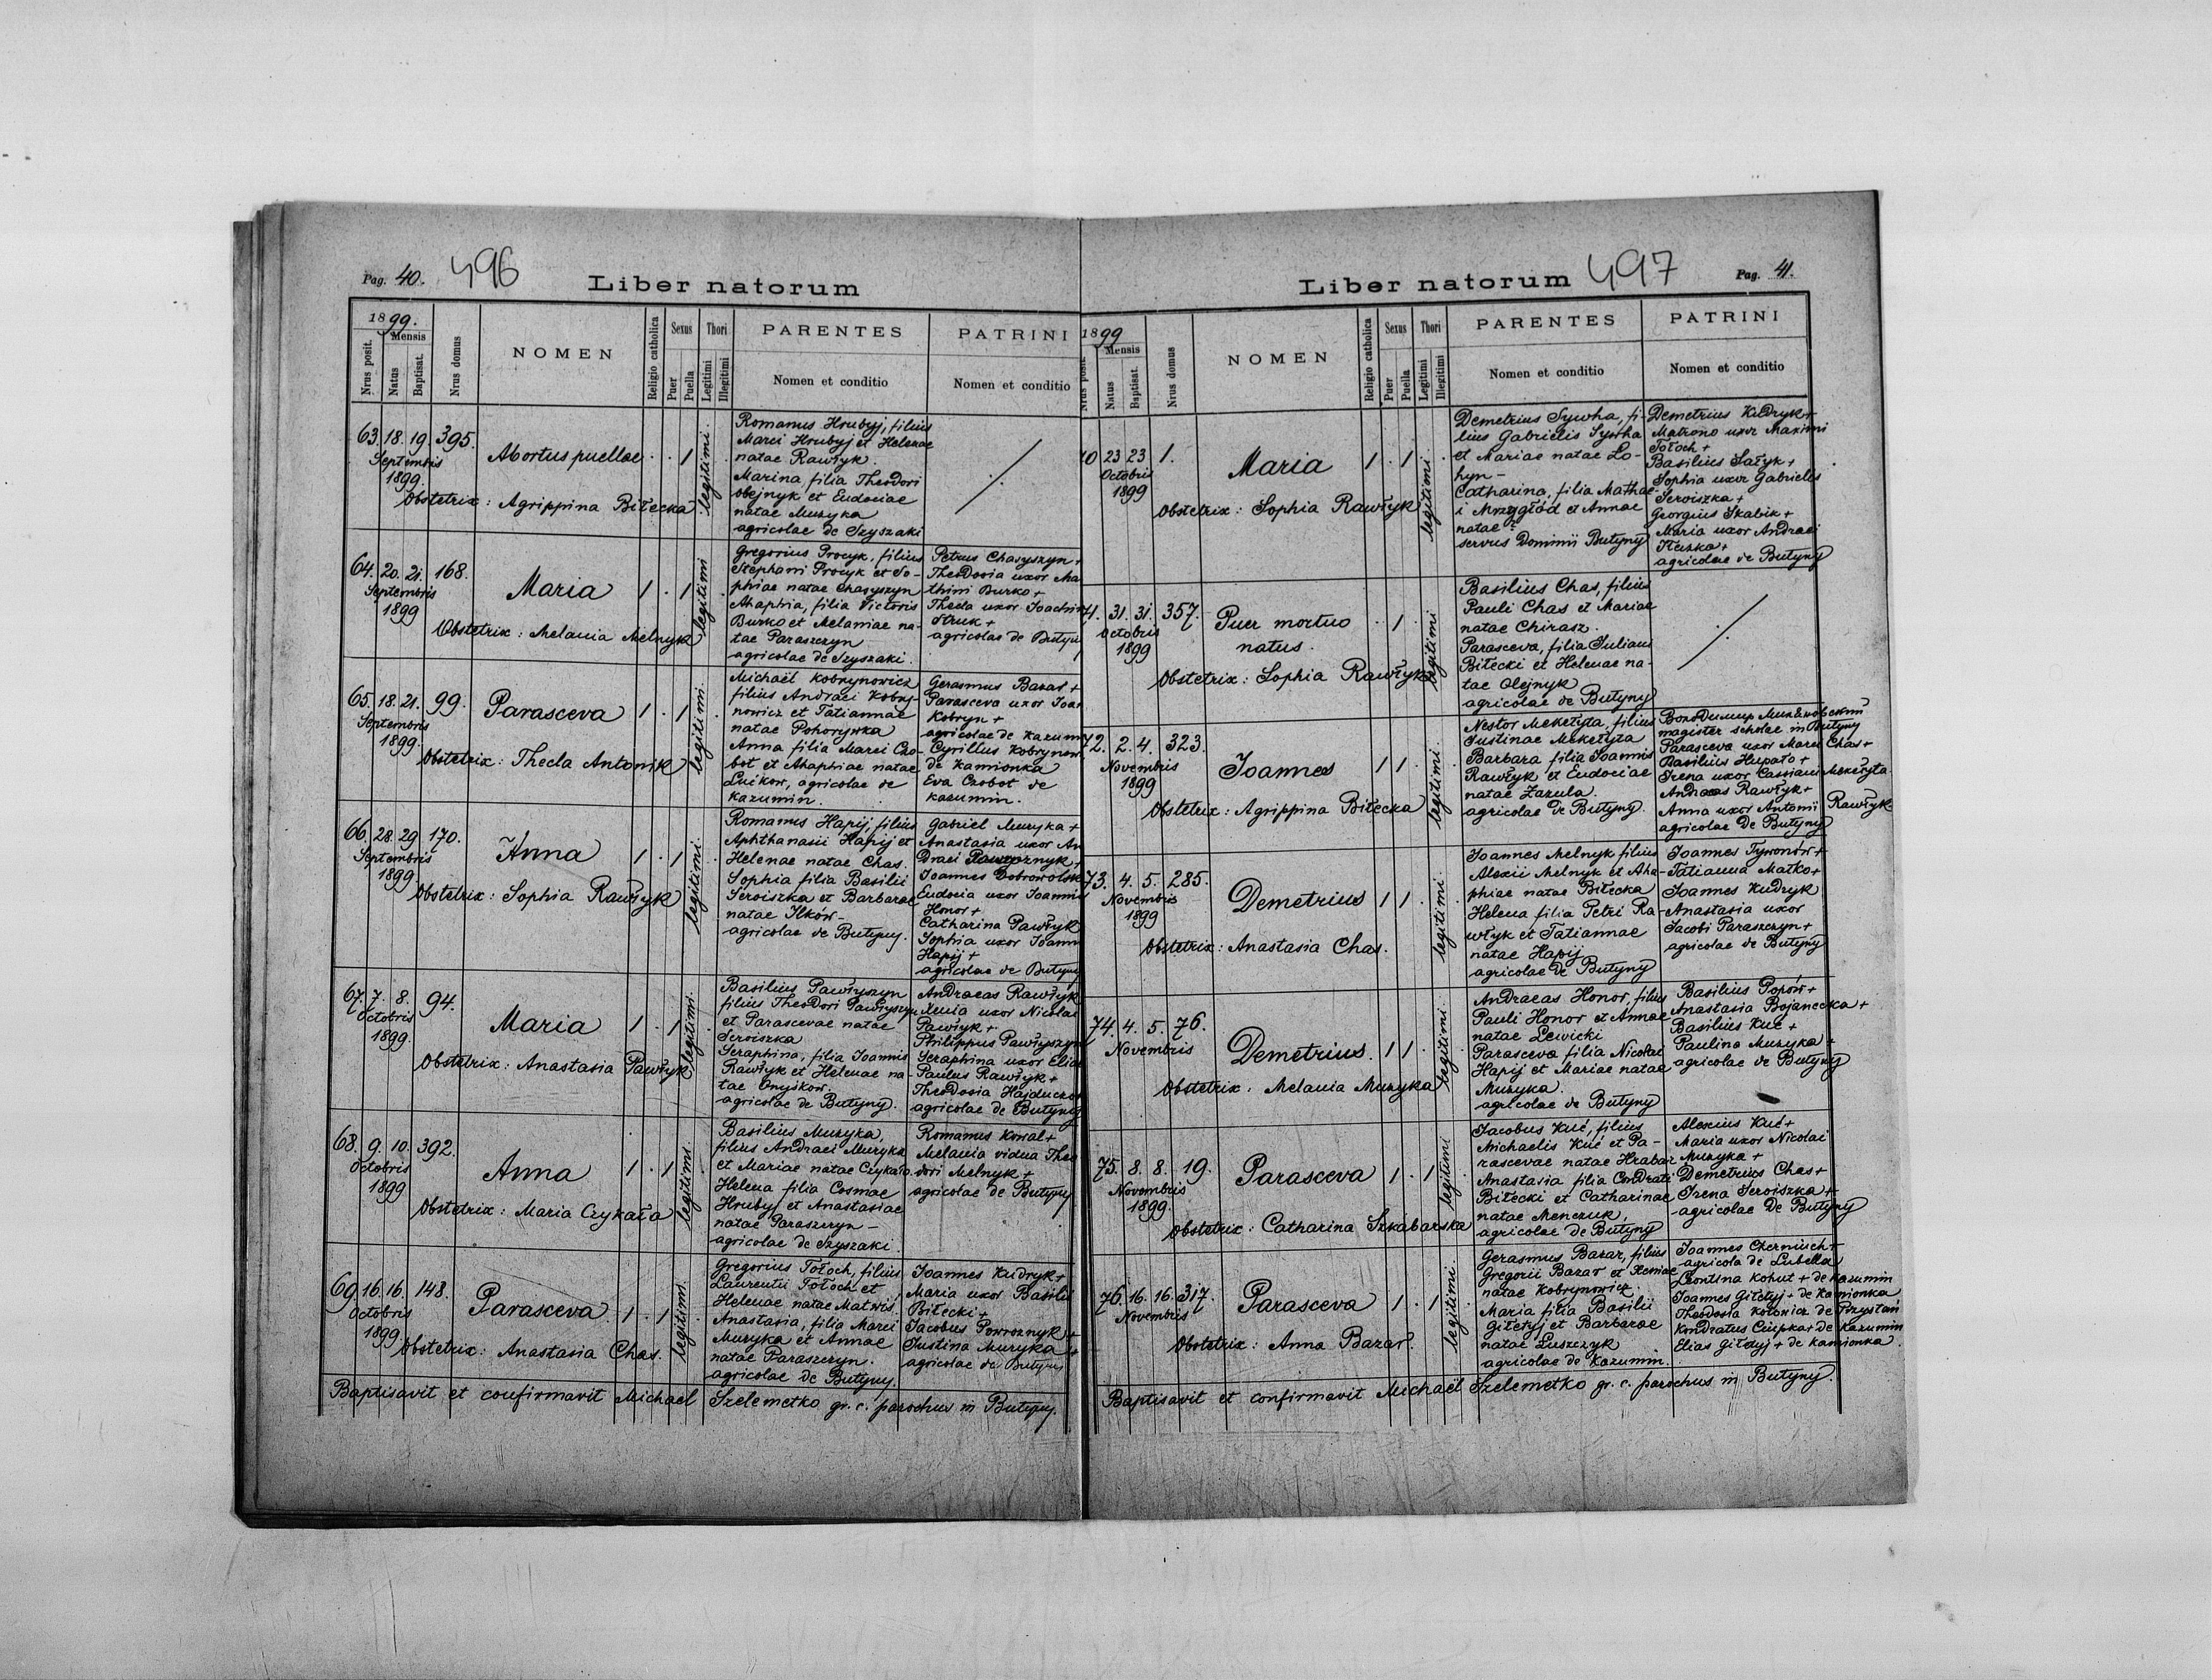 Pag. 40. 496
Liber natorum
1899.
Nrus posit.
Mensis
Natus
Baptisat.
Nrus domus
NOMEN
Religio catholica
Sexus
Puer
Puella
Thori
Legitimi
Illegitimi
PARENTES
Nomen et conditio
PATRINI
Nomen et conditio
63. 18. 19. 395.
Septembris
1899.
Abortus puellae
1
legitimi.
Obstetrix: Agrippina Biłecka
Romanus Hrubyj, filius
Marci Hrubyj et Helenae
natae Rawłyk.
Marina filia Theodori
Olejnyk et Eudociae
natae Muzyka
agricolae de Szyszaki
64. 20. 21. 168.
Septembris
1899
Maria
1 . 1
legitimi
Obstetrix: Melania Melnyk
Gregorius Procyk, filius
Stephani Procyk et So-
phiae natae Chasyszyn
Ahaphia, filia Victoris
Burko et Melaniae na-
tae Paraszczyn
agricolae de Szyszaki.
Petrus Chasyszyn +
Theodosia uxor Ma
thini Burko +
Thecla uxor Joachim
Struk +
agricolae de Butyny
65. 18. 21. 99.
Septembris
1899.
Parasceva
1 . 1
legitimi.
Obstetrix: Thecla Antonik
Michaël Kobrynowicz
filius Andraei Kobry-
nowicz et Tatiannae
natae Pohorywka
Anna filia Marci Czo-
bot et Ahaphiae natae
Luikow, agricolae de
Kazumin.
Gerasmus Bazar +
Parasceva uxor Joan
Kobryn +
agricolae de Kazumin
Cyrillus Kobrynow
de Kamionka
Eva Czobot de
Kazumin.
66. 28. 29. 170.
Septembris
1899
Anna
1 . 1
legitimi.
Obstetrix: Sophia Rawłyk
Romanus Hapij, filius
Aphthanasii Hapij et
Helenae natae Chas.
Sophia filia Basilii
Seroiszka et Barbarae
natae Ilków-
agricolae de Butyny.
Gabriel Muzyka +
Anastasia uxor An
draei Powroznyk +
Joannes Dobrowolsk
Eudocia uxor Joannis
Honor +
Catharina Pawłyk
Sophia uxor Joann
Hapij +
agricolae de Butyny
67. 7. 8. 94.
Octobris
1899.
Maria
1 . 1
legitimi.
Obstetrix: Anastasia Pawłyk
Basilius Pawłyszyn
filius Theodori Pawłyszyn
et Parascevae natae
Seroiszka
Seraphina, filia Joannis
Rawłyk et Helenae na-
tae Onyśkow.
agricolae de Butyny.
Andraeas Rawłyk
uxor Nicolai
Pawłyk +
Philippus Pawłyszyn
Seraphina uxor Eliae
Paulus Rawłyk +
Theodosia Hajduczok
agricolae de Butyny
68. 9. 10. 392.
Octobris
1899
Anna
1 . 1
legitimi.
Obstetrix: Maria Czykała
Basilius Muzyka,
filius Andraei Muzyka
et Mariae natae Czykała.
Helena filia Cosmae
Hrubyj et Anastasiae
natae Paraszczyn -
agricolae de Szyszaki.
Romanus Kowal +
Melania vidua Theo
dori Melnyk +
agricolae de Butyny
69. 16. 16. 148.
Octobris
1899
Parasceva
1 . 1
legitimi.
Obstetrix: Anastasia Chas.
Gregorius Tołoch, filius
Laurentii Tołoch et
Helenae natae Matwis.
Anastasia, filia Marci
Muzyka et Annae
natae Paraszczyn.
agricolae de Butyny.
Joannes Kudryk +
Maria uxor Basilii
Biłecki +
Jacobus Powroznyk +
Justina Muzyka +
agricolae de Butyny
Baptisavit et confirmavit Michael Szelemetko gr. c. parochus in Butyny.
497 Pag. 41.
Liber natorum
1899
Nrus posit.
Mensis
Natus
Baptisat.
Nrus domus
NOMEN
Religio catholica
Sexus
Puer
Puella
Thori
Legitimi
Illegitimi
PARENTES
Nomen et conditio
PATRINI
Nomen et conditio
70 23 23 1.
Octobris
1899
Maria
1 . 1
legitimi.
Obstetrix: Sophia Rawłyk
Demetrius Sywha, fi-
lius Gabrielis Sywha
et Mariae natae Lo-
hyn -
Catharina, filia Mathae-
i Mrzygłód et Annae
natae ?
servus Dominii Butyny
Demetrius Kudryk +
Matrono uxor Maximi
Tołoch +
Basilius Sałyk +
Sophia uxor Gabrielis
Seroiszka +
Georgius Skabik +
Maria uxor Andraei
agricolae de Butyny
71. 31. 31. 357.
Octobris
1899
Puer mortuo
natus.
1
legitimi
Obstetrix: Sophia Rawłyk
Basilius Chas, filius
Pauli Chas et Mariae
natae Chirasz.
Parasceva, filia Juliani
Biłecki et Helenae na-
tae Olejnyk
agricolae de Butyny
72. 2. 4. 323.
Novembris
1899
Joannes
1 1
legitimi.
Obstetrix: Agrippina Biłecka
Nestor Mekełyta, filius
Justinae Mekełyta
Barbara filia Joannis
Rawłyk et Eudociae
natae Zazula.
agricolae de Butyny.
magister scholae in Butyny
Parasceva uxor Marci Chas +
Basilius Hupało +
Irena uxor Cassiani Mekełyta
Andraeas Rawłyk +
Anna uxor Antonii Rawłyk
agricolae de Butyny
73. 4. 5. 285.
Novembris
1899
Demetrius
1 1
legitimi.
Obstetrix: Anastasia Chas.
Joannes Melnyk filius
Alexii Melnyk et Aha-
phiae natae Biłecka
Helena filia Petri Ra-
włyk et Tatiannae
natae Hapij
agricolae de Butyny
Joannes Tywonów +
Tatianna Matko +
Joannes Kudryk
Anastasia uxor
Jacobi Paraszczyn +
agricolae de Butyny
74 4. 5. 76.
Novembris
Demetrius.
1 1
legitimi.
Obstetrix: Melania Muzyka
Andraeas Honor, filius
Pauli Honor et Annae
natae Lewicki
Parasceva filia Nicolai
Hapij et Mariae natae
Muzyka.
agricolae de Butyny
Basilius Popów +
Anastasia Bojanecka +
Basilius Kuć +
Paulina Muzyka +
agricolae de Butyny
75. 8. 8. 19.
Novembris
1899.
Parasceva
1 . 1
legitimi
Obstetrix: Catharina Szkabarska
Jacobus Kuć, filius
Michaelis Kuć et Pa-
rascevae natae Hrabar
Anastasia filia Condrati
Biłecki et Catharinae
natae Menczuk,
agricolae de Butyny
Alexius Kuć +
Maria uxor Nicolai
Muzyka +
Demetrius Chas +
Irena Seroiszka +
agricolae de Butyny
76. 16. 16. 317.
Novembris
Parasceva
1 . 1
legitimi.
Obstetrix: Anna Bazar.
Gerasmus Bazar, filius
Gregorii Bazar et Xeniae
natae Kobrynowicz
Maria filia Basilii
Giłetyj et Barbarae
natae Łuszczyk
agricolae de Kazumin.
Joannes Chermisch +
agricola de Lubella
Leontina Kohut + de Kazumin
Joannes Giłetyj + de Kamionka
Theodosia Kotowicz de Przystań
Kondratus Ciupka + de Kazumin
Elias Giłetyj + de Kamionka.
Baptisavit et confirmavit Michaël Szelemetko gr. c. parochus in Butyny.